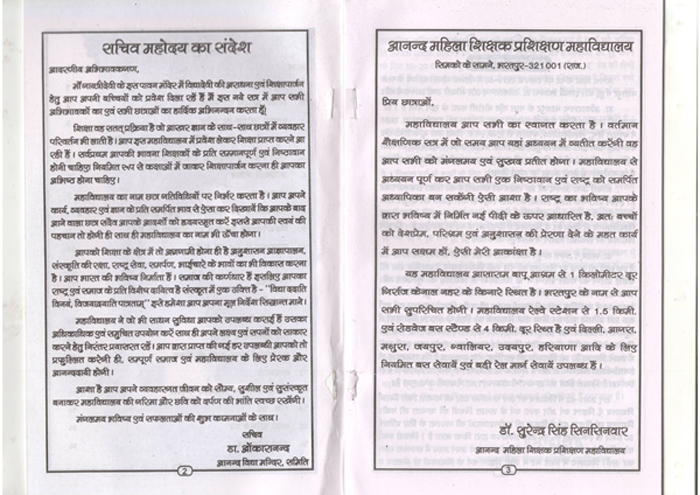 सचिव महोदय का संदेश
आदरणीय अभिभावकगण,
माँ गायत्रीदेवी के इस पावन मंदिर में विद्यादेवी की अराधना एवं शिक्षार्पाजन
हेतु आप अपनी बच्चियों को प्रवेश दिला रहें हैं मैं इस नये सत्र में आप सभी
अभिभावकों का एवं सभी छात्राओं का हार्दिक अभिनन्दन करता हूँ।
शिक्षा वह सतत् प्रक्रिया है जो आखार ज्ञान के साथ-साथ छात्रों में व्यवहार
परिवर्तन भी लाती है। आप इस महाविद्यालय में प्रवेश लेकर शिक्षा प्राप्त करने आ
रही हैं। सर्वप्रथम आपकी भावना शिक्षकों के प्रति सम्मानपूर्ण एवं निष्ठावान
होनी चाहिए नियमित रूप से कक्षाओं में जाकर शिक्षार्पाजन करना ही आपका
अभिष्ठ होना चाहिए।
महाविद्यालय का नाम छात्र गतिविधियों पर निर्भर करता है। आप अपने
कार्य, व्यवहार एवं ज्ञान के प्रति समर्पित भाव से ऐसा कर दिखायें कि आपके बाद
आने वाला छात्र सदैव आपके आदर्शो को हृदयस्मृत करें इससे आपकी स्वयं की
पहचान तो होगी ही साथ ही महाविद्यालय का नाम भी ऊँचा होगा।
आपको शिक्षा के क्षेत्र में तो अग्रणामी होना ही है अनुशासन आज्ञापालन,
संस्कृति की रक्षा, राष्ट्र सेवा, समर्पण, भाईचारे के भावों का भी विकास करना
है। आप भारत की भविष्य निर्माता हैं। समाज की कर्णधार हैं इसलिए आपका
राष्ट्र एवं समाज के प्रति विशेष दायित्व है संस्कृत में एक उक्ति है - "विद्या ददाति
विनयं, विनयाद्याति पात्रताम्" इसे हमेशा आप अपना मूल निर्देश सिद्धान्त माने।
महाविद्यालय ने जो भी साधन सुविधा आपको उपलब्ध कराई हैं उसका
अधिकाधिक एवं समुचित उपयोग करें साथ ही अपने लक्ष्य एवं सपनों को साकार
करने हेतु निरंतर प्रयासरत रहें। आप द्वारा प्राप्त की गई हर उपलब्धी आपको तो
प्रफुल्लित करेगी ही, सम्पूर्ण समाज एवं महाविद्यालय के लिए प्रेरक और
आनन्ददायी होगी।
आशा है आप अपने व्यवहारगत जीवन को सौम्य, सुशील एवं सुसंस्कृत
बनाकर महाविद्यालय की गरिमा और छवि को दर्पण की भांति स्वच्छ रखेंगी।
मंगलमय भविष्य एवं सफलताओं की शुभ कामनाओं के साथ।
सचिव
डा. ओंकारानन्द
आनन्द विद्या मन्दिर, समिति
2
आनन्द महिला शिक्षक प्रशिक्षण महाविद्यालय
सिमको के सामने, भरतपुर-321001 (राज.)
प्रिय छात्राओं,
महाविद्यालय आप सभी का स्वागत करता है। वर्तमान
शैक्षणिक सत्र में जो समय आप यहां अध्ययन में व्यतीत करेंगी वह
आप सभी को मंगलमय एवं सुखद प्रतीत होगा। महाविद्यालय से
अध्ययन पूर्ण कर आप सभी एक निष्ठावान एवं राष्ट्र को समर्पित
अध्यापिका बन सकेंगी ऐसी आशा है। राष्ट्र का भविष्य आपके
द्वारा भविष्य में निर्मित नई पीढी के ऊपर आधारित है, अतः बच्चों
को देशप्रेम, परिश्रम एवं अनुशासन की प्रेरणा देने के महत कार्य
में आप सक्षम हों, ऐसी मेरी आकांक्षा है।
यह महाविद्यालय आसाराम बापू आश्रम से 1 किलोमीटर दूर
गिर्राज केनाल नहर के किनारे स्थित है। भरतपुर के नाम से आप
सभी सुपरिचित होगी। महाविद्यालय रेल्वे स्टेशन से 1.5 किमी.
एवं रोडवेज बस स्टैण्ड से 4 किमी. दूर स्थित है एवं दिल्ली, आगरा,
मथुरा, जयपुर, ग्वालियर, उदयपुर, हरियाणा आदि के लिए
नियमित बस सेवायें एवं बडी रेल मार्ग सेवायें उपलब्ध हैं।
डॉ. सुरेन्द्र सिंह सिनसिनवार
आनन्द महिला शिक्षक प्रशिक्षण महाविद्यालय
3